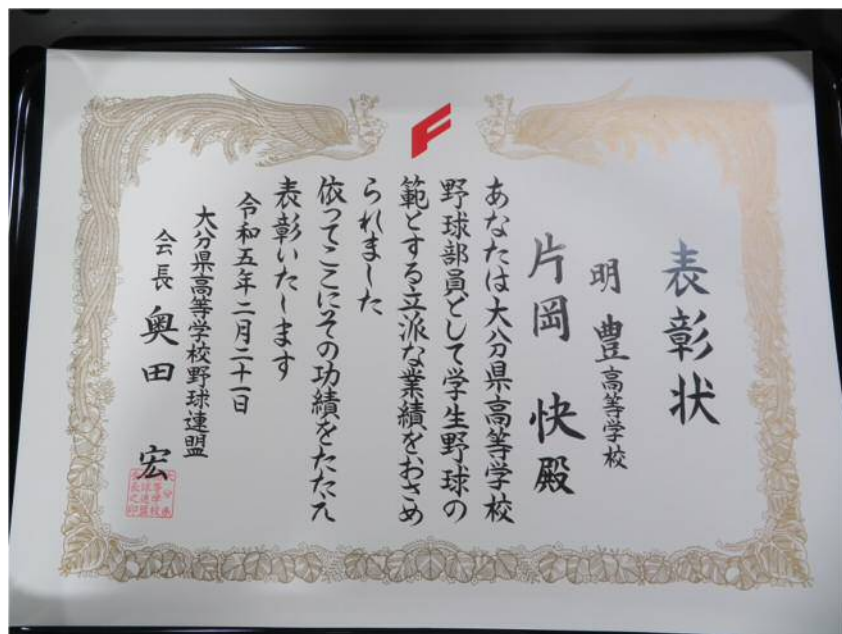 表彰状
明豊高等学校
片岡快殿
あなたは大分県高等学校
野球部員として学生野球の
範とする立派な業績をおさめ
られました
依ってここにその功績をたたえ
表彰いたします
令和五年二月二十一日
大分県高等学校野球連盟
会長奥田宏